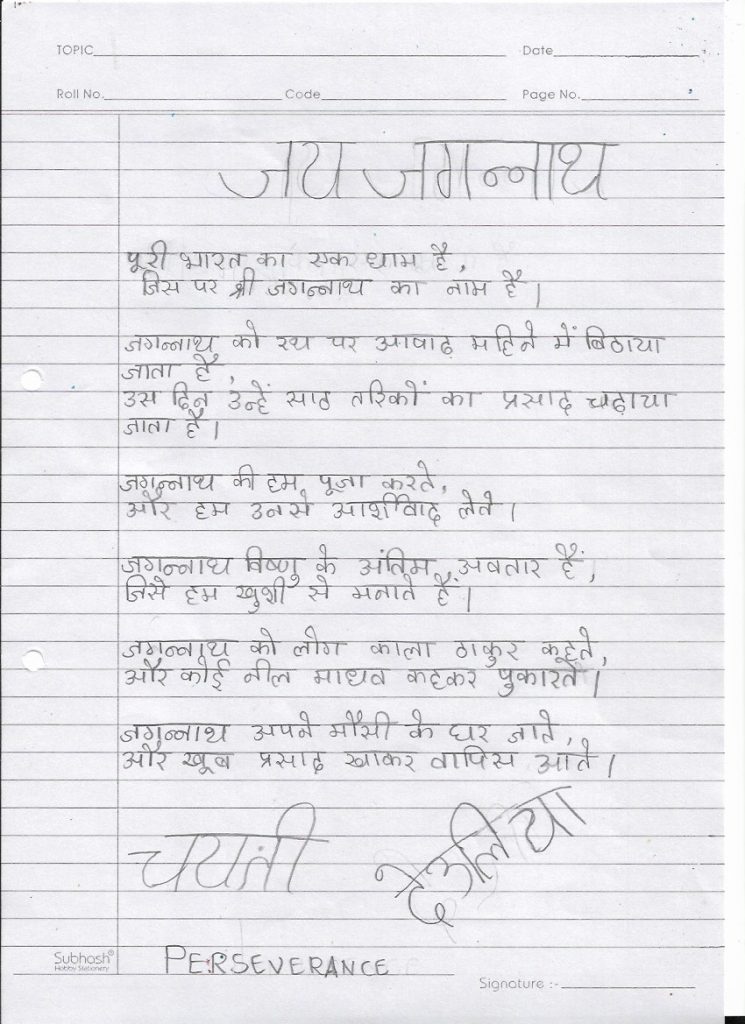 TOPIC Date
Roll No. Code Page No.
जय जगन्नाथ
पूरी भारत का एक धाम है,
जिस पर श्री जगन्नाथ का नाम है।
जगन्नाथ को रथ पर आषाढ़ महिने में बिठाया
जाता है,
उस दिन उन्हें साठ तरिकों का प्रसाद चढ़ाया
जाता है।
जगन्नाथ की हम पूजा करते,
और हम उनसे आर्शीवाद लेते।
जगन्नाथ विष्णु के अंतिम अवतार हैं,
जिसे हम खुशी से मनाते हैं।
जगन्नाथ को लोग काला ठाकुर कहते,
और कोई नील माधव कहकर पुकारते।
जगन्नाथ अपने मौसी के घर जाते,
और खूब प्रसाद खाकर वापिस आते।
चयती देउलिया
Subhash®
Hobby Stationery
PERSEVERANCE
Signature :-